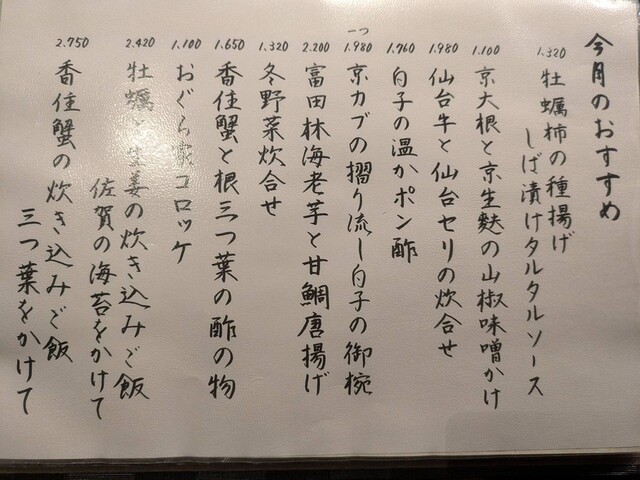 今月のおすすめ
1.320
牡蠣柿の種揚げ
しば漬けタルタルソース
1.100
京大根と京生麩の山椒味噌かけ
1.980
仙台牛と仙台セリの炊合せ
1.760
白子の温かポン酢
一つ
1.980
京カブの摺り流し白子の御椀
2.200
富田林海老芋と甘鯛唐揚げ
1.320
冬野菜炊合せ
1.650
香住蟹と根三つ葉の酢の物
1.100
おぐら家コロッケ
2.420
牡蠣と生姜の炊き込みご飯
佐賀の海苔をかけて
2.750
香住蟹の炊き込みご飯
三つ葉をかけて